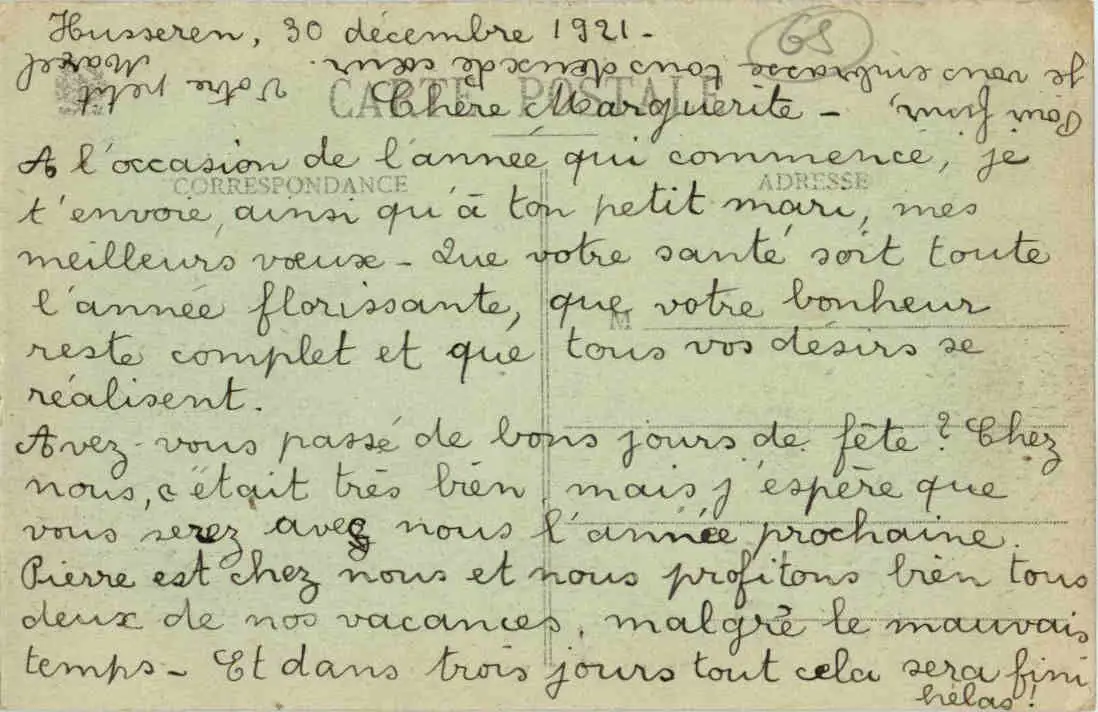 Husseren, 30 décembre 1921-
68
CARTE POSTALE
Chère Marguerite -
CORRESPONDANCE
ADRESSE
A l'occasion de l'année qui commence, je
t'envoie, ainsi qu'à ton petit mari, mes
meilleurs vœux - Que votre santé soit toute
l'année florissante, que votre bonheur
M
reste complet et que tous vos désirs se
réalisent.
Avez-vous passé de bons jours de fête ? Chez
nous, c'était très bien, mais j'espère que
vous serez avec nous l'année prochaine.
Pierre est chez nous et nous profitons bien tous
deux de nos vacances, malgré le mauvais
temps - Et dans trois jours tout cela sera fini
hélas !
Pour finir,
je vous embrasse tous deux de cœur.
Votre petit
Marcel